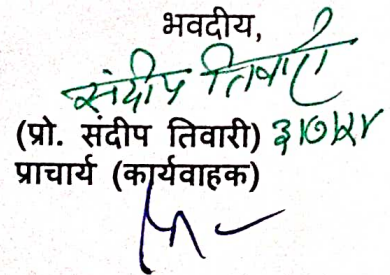 भवदीय,
संदीप तिवारी
(प्रो. संदीप तिवारी)
प्राचार्य (कार्यवाहक)